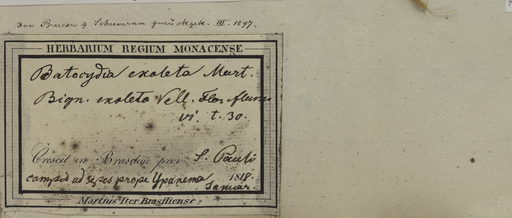 von Bureau & Schumann zurückgek. III. 1897.
HERBARIUM REGIUM MONACENSE
Batocydia exoleta Mart.
Bign. exoleta Vell. Flor flum
vi. t. 30.
Crescit in Brasiliae prov. S. Pauli
campis ad sepes prope Ypanema 1818.
Januar.
Martius Iter Brasiliense: